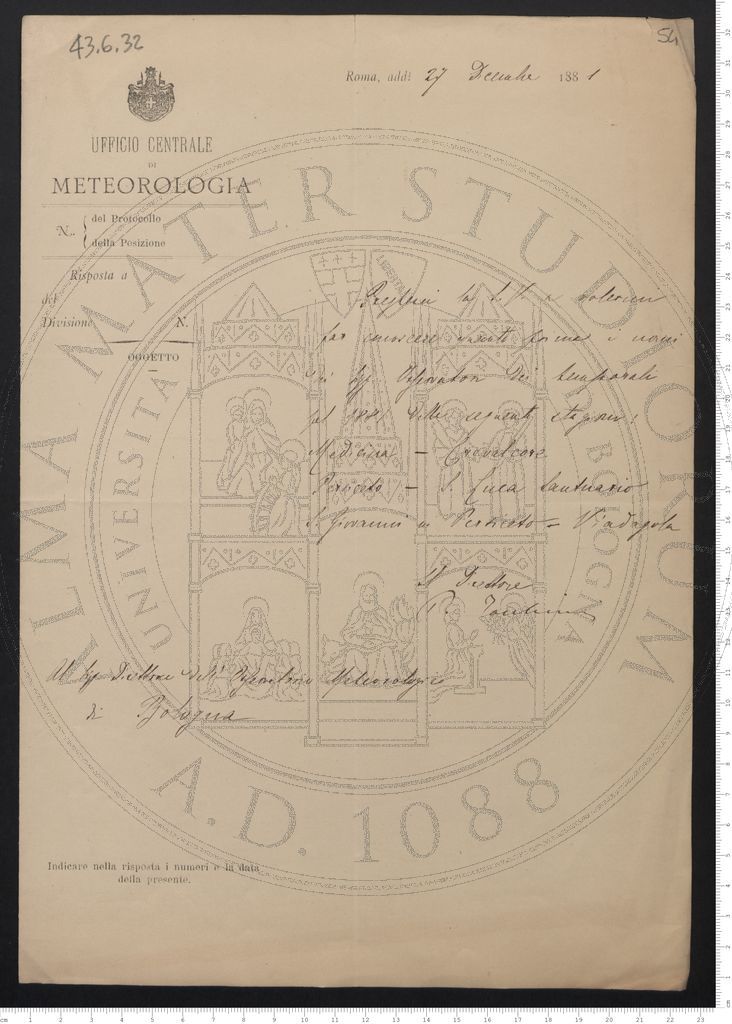 43.6.32
54
Roma, addì 27 Decembre 1881
UFFICIO CENTRALE
DI
METEOROLOGIA
N.. { del Protocollo
della Posizione
Risposta a
del
Divisione N.
OGGETTO
Pregherei la S. V. a volermi
far conoscere quanti prima i nomi
dei Sigg Osservatori dei temporali
pel 1881 delle seguenti stazioni:
Medicina – Crevalcore
Persiceto – S. Luca Santuario
S. Giovanni in Persiceto – Viadagola
Il Direttore
P. Tacchini
Al Sig. Direttore dell' Osservatorio Meteorologico
di Bologna
Indicare nella risposta i numeri e la data
della presente.
ALMA MATER STUDIORUM
UNIVERSITA DI BOLOGNA
LIBERTAS
A.D. 1088